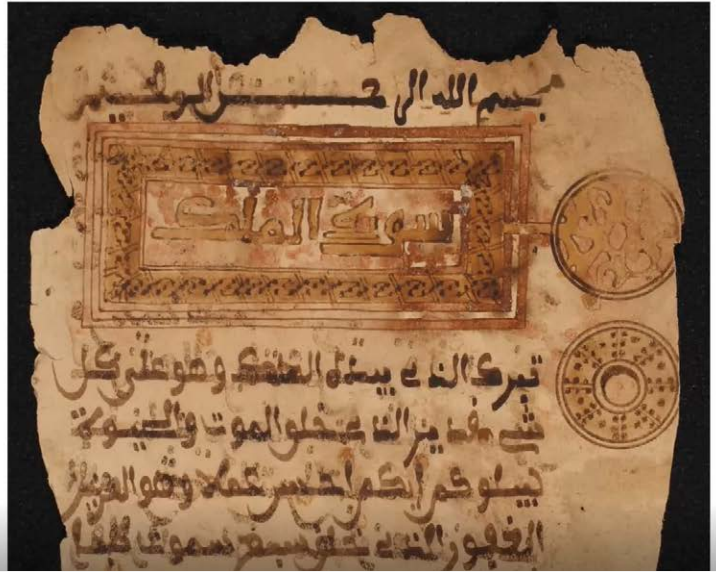 بسم الله الرحمن الرحيم
سورة الملك
تبرك الذي بيده الملك وهو على كل
شيء قدير الذي خلق الموت والحيوة
ليبلوكم أيكم أحسن عملا وهو العزيز
الغفور الذي خلق سبع سموت طباقا